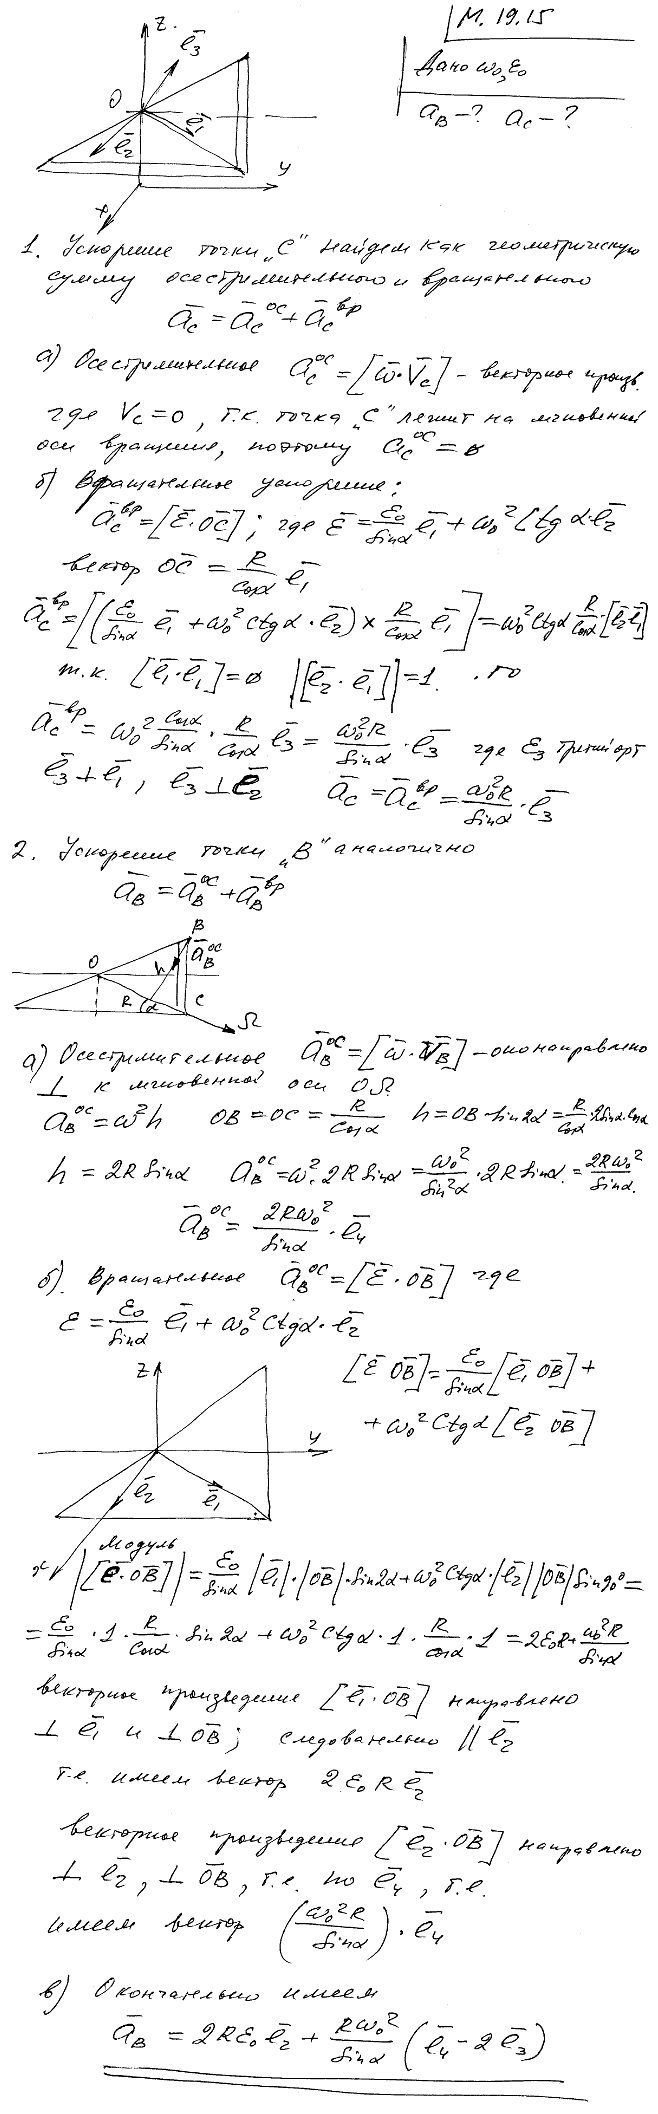 М. 19.15
Дано ω₀, ε₀
a_B – ? a_C – ?
z
ē₃
O
ē₁
ē₂
y
x
1. Ускорение точки „C" найдем как геометрическую
сумму осестремительного и вращательного
ā_C = ā_C^ос + ā_C^вр
а) Осестремительное ā_C^ос = [ω̄·V̄_C] – векторное произв.
где V_C = 0, т.к. точка „C" лежит на мгновенной
оси вращения, поэтому a_C^ос = 0
б) Вращательное ускорение:
ā_C^вр = [ε̄·OC̄]; где ε̄ = ε₀/sinα ē₁ + ω₀² Ctgα·ē₂
вектор OC̄ = R/cosα ē₁
ā_C^вр = [(ε₀/sinα ē₁ + ω₀² ctgα·ē₂) × R/cosα ē₁] = ω₀² Ctgα R/cosα·[ē₂ē₁]
т.к. [ē₁·ē₁] = 0 |[ē₂·ē₁]| = 1. то
ā_C^вр = ω₀² cosα/sinα · R/cosα ē₃ = ω₀²R/sinα · ē₃ где ē₃ третий орт
ē₃ ⊥ ē₁, ē₃ ⊥ ē₂ ā_C = ā_C^вр = ω₀²R/sinα · ē₃
2. Ускорение точки „B" аналогично
ā_B = ā_B^ос + ā_B^вр
B
ā_B^ос
O
h
R
α
C
Ω
а) Осестремительное ā_B^ос = [ω̄·V̄_B] – оно направлено
⊥ к мгновенной оси OΩ
a_B^ос = ω²h OB = OC = R/cosα h = OB·sin2α = R/cosα·2sinα·cosα
h = 2R sinα a_B^ос = ω²·2R sinα = ω₀²/sin²α·2R sinα = 2Rω₀²/sinα.
ā_B^ос = 2Rω₀²/sinα · ē₄
б). Вращательное ā_B^ос = [ε̄·OB̄] где
ε = ε₀/sinα ē₁ + ω₀² Ctgα·ē₂
[ε̄ OB̄] = ε₀/sinα [ē₁ OB̄] +
+ ω₀² Ctgα [ē₂ OB̄]
z
y
ē₂
ē₁
x
Модуль
|[ε̄·OB̄]| = ε₀/sinα |ē₁|·|OB̄|·sin2α + ω₀² Ctgα·|ē₂||OB̄|sin90° =
= ε₀/sinα · 1 · R/cosα · sin2α + ω₀² Ctgα·1·R/cosα·1 = 2ε₀R + ω₀²R/sinα
векторное произведение [ē₁·OB̄] направлено
⊥ ē₁ и ⊥ OB̄; следовательно || ē₂
т.е. имеем вектор 2ε₀R ē₂
векторное произведение [ē₂·OB̄] направлено
⊥ ē₂, ⊥ OB̄, т.е. по ē₄, т.е.
имеем вектор (ω₀²R/sinα)·ē₄
в) Окончательно имеем
ā_B = 2Rε₀ē₂ + Rω₀²/sinα (ē₄ – 2ē₃)